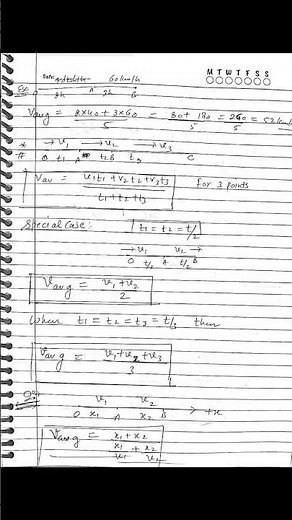 M T W T F S S
Date: 60 km/h
Ex:
2h A 3h B
Vavg = 2×40 + 3×60 / 5 = 80 + 180 / 5 = 260 / 5 = 52 km/h
* → v1 → v2 → v3
# O t1 A t2 B t3 C
Vav = v1t1 + v2t2 + v3t3 / t1 + t2 + t3 For 3 points
Special Case: t1 = t2 = t/2
→ v1 v2 →
O t/2 A t/2 B
Vavg = v1 + v2 / 2
When t1 = t2 = t3 = t/3 then
Vavg = v1 + v2 + v3 / 3
v1 v2
O x1 A x2 B > +x
Vavg = x1 + x2 / x1/v1 + x2/v2